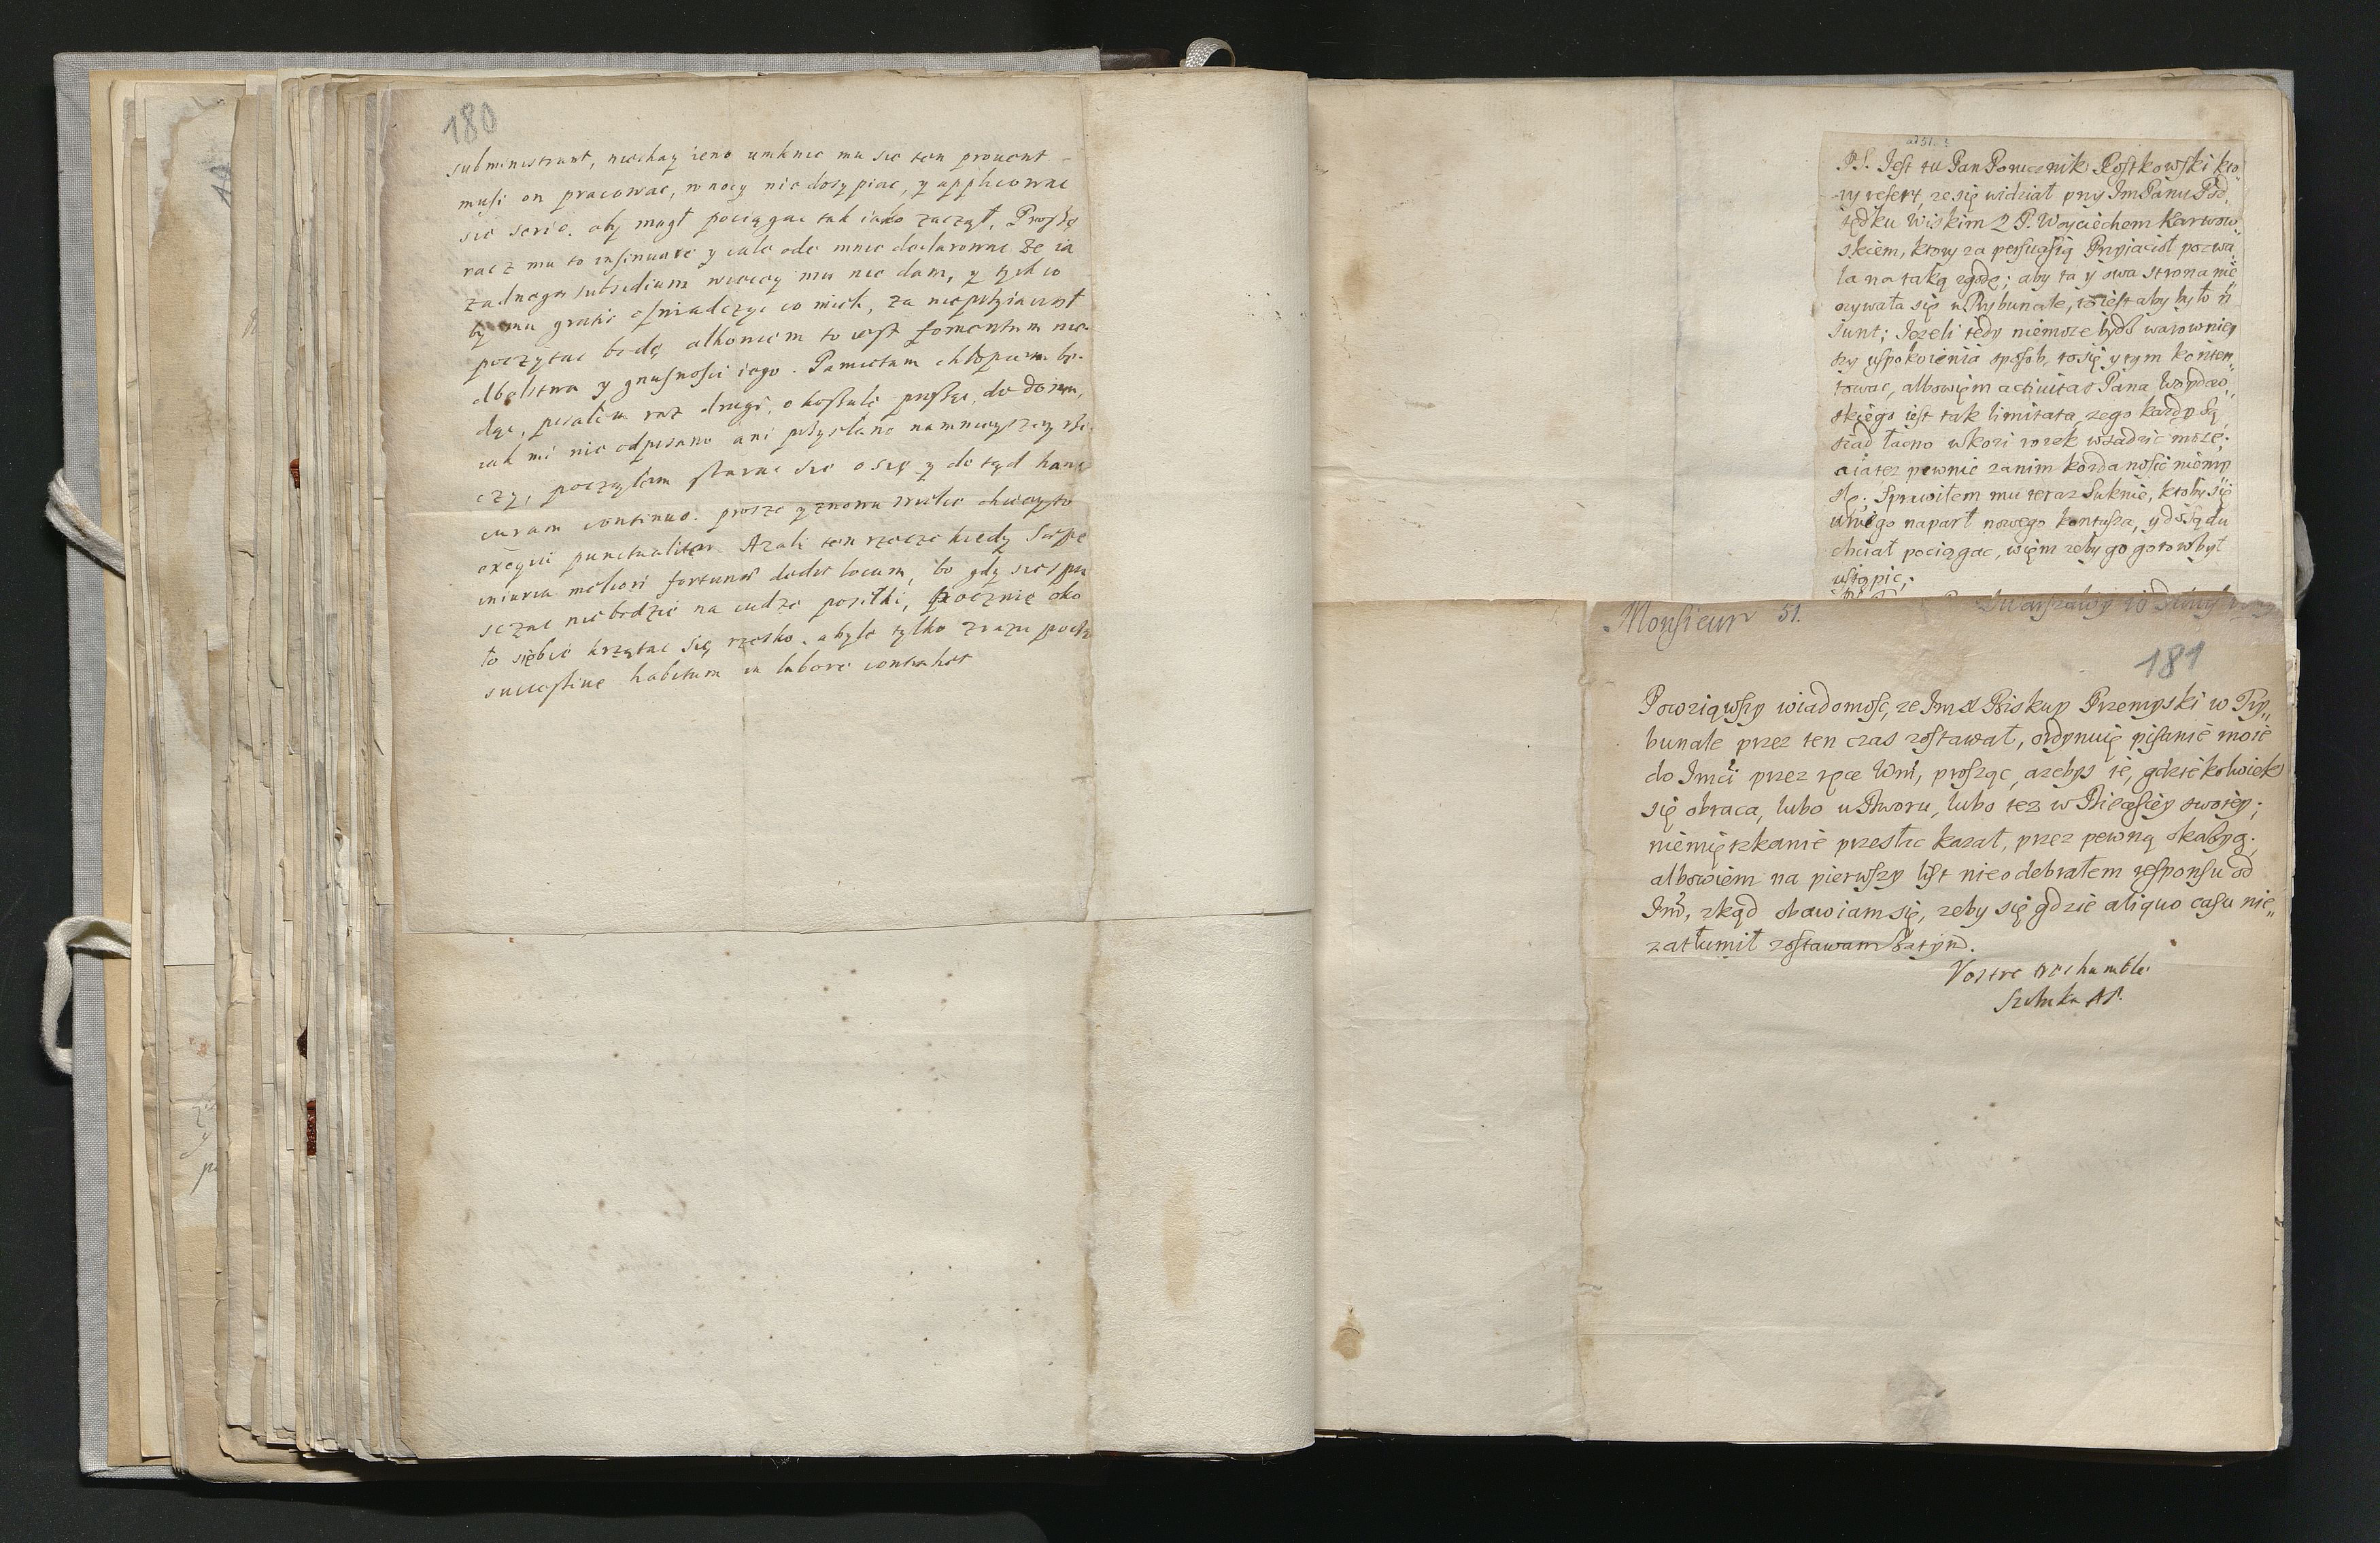 180
subministrant, niechay ieno umknie mu sie ten prouent
musi on pracowac, w nocy nie dosypiac, y applicowac
sie serio. aby mogł pociągac tak iako zaczął. Proszę
racz mu to insinuare y cale ode mnie declarowac ze ia
zadnego subsidium wiecey mu nie dam, y tych co
by mu gratis oswiadczyc co mieli, za nieprzyiacioł
poczytac bedę alboniem to iest fomentum nie
dbalstwa y gnusnosci iego. Pamietam chłopcem be-
dąc, pisalem raz drugi, o koszule prosząc, do domu,
iak mi nie odpisano ani przysłano namnieyszey rze-
czy, począłem starac sie o się y do tąd hanc
curam continuo. prosze y znowu
exequi punctualiter. Azali ten rzecze kiedy Saepe
iniuria meliori fortunae dedit locum, bo gdy sie spu
szczac nie bedzie na cudze posiłki, pocznie oko
ło siebie krzątac się rzesko. abyle tylko zrazu
successiue habitum in labore contrahet
ad 51.
P.S. Jest tu Pan Porucznik Rostkowski kto
ry refert, ze się widział przy Jm Panu Pod,
sędku Wiskim z P. Woyciechem Karwow,
skiem, ktory za persuasią Przyiacioł pozwa,
la na taką zgodę; aby ta y owa strona nie
ozywała się w Trybunale, to iest aby było
sunt; Jezeli tedy niemoze bydz warowniey
szy uspokoienia sposob, to się y tym konten,,
towac, albowiem activitas Pana
skiego iest tak limitata, ze go kazdy Są,
siad łacno w kozi rozek wsadzic moze;
a ia tez pewnie za nim korda nosic niemy
slę. Sprawiłem mu teraz Suknie, ktoby się
u niego naparł nowego kontusza, y do Sądu
chciał pociągac, wiem zeby go gotow był
ustąpic.
Monsieur 51.
z Warszawy 10
181
Powziąwszy wiadomosc, ze Jm X Biskup Przemyski w Try,,
bunale przez ten czas zostawał, ordynuię pisanie moie
do Jmci przez ręce Wm, prosząc, azebys ie, gdziekolwiek
się obraca, lubo u Dworu, lubo tez w Diecesiey swoiey;
niemięszkanie przesłac kazał, przez pewną okazyą;
albowiem na pierwszy list nieodebrałem responsu od
Jmci, zkąd obawiam się, zeby się gdzie aliquo casu nie,,
zatłumił zostawam
Vostre tres humble
Szeluka AP.